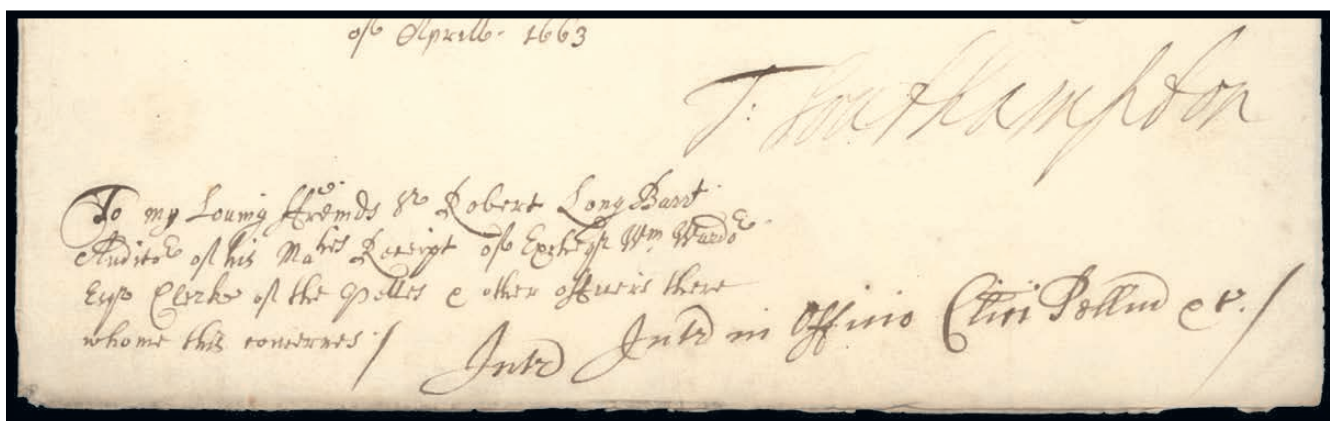 of Aprill. 1663
T: Southampton
To my Loving ffreinds Sr Robert Long Barrt
Auditor of his Maties Receipt of Excheqr Wm Wardor
Esqr Clerke of the Pelles & other officers there
whome this concernes /
Intr Intr in Officio Clici Pelliu &c. /